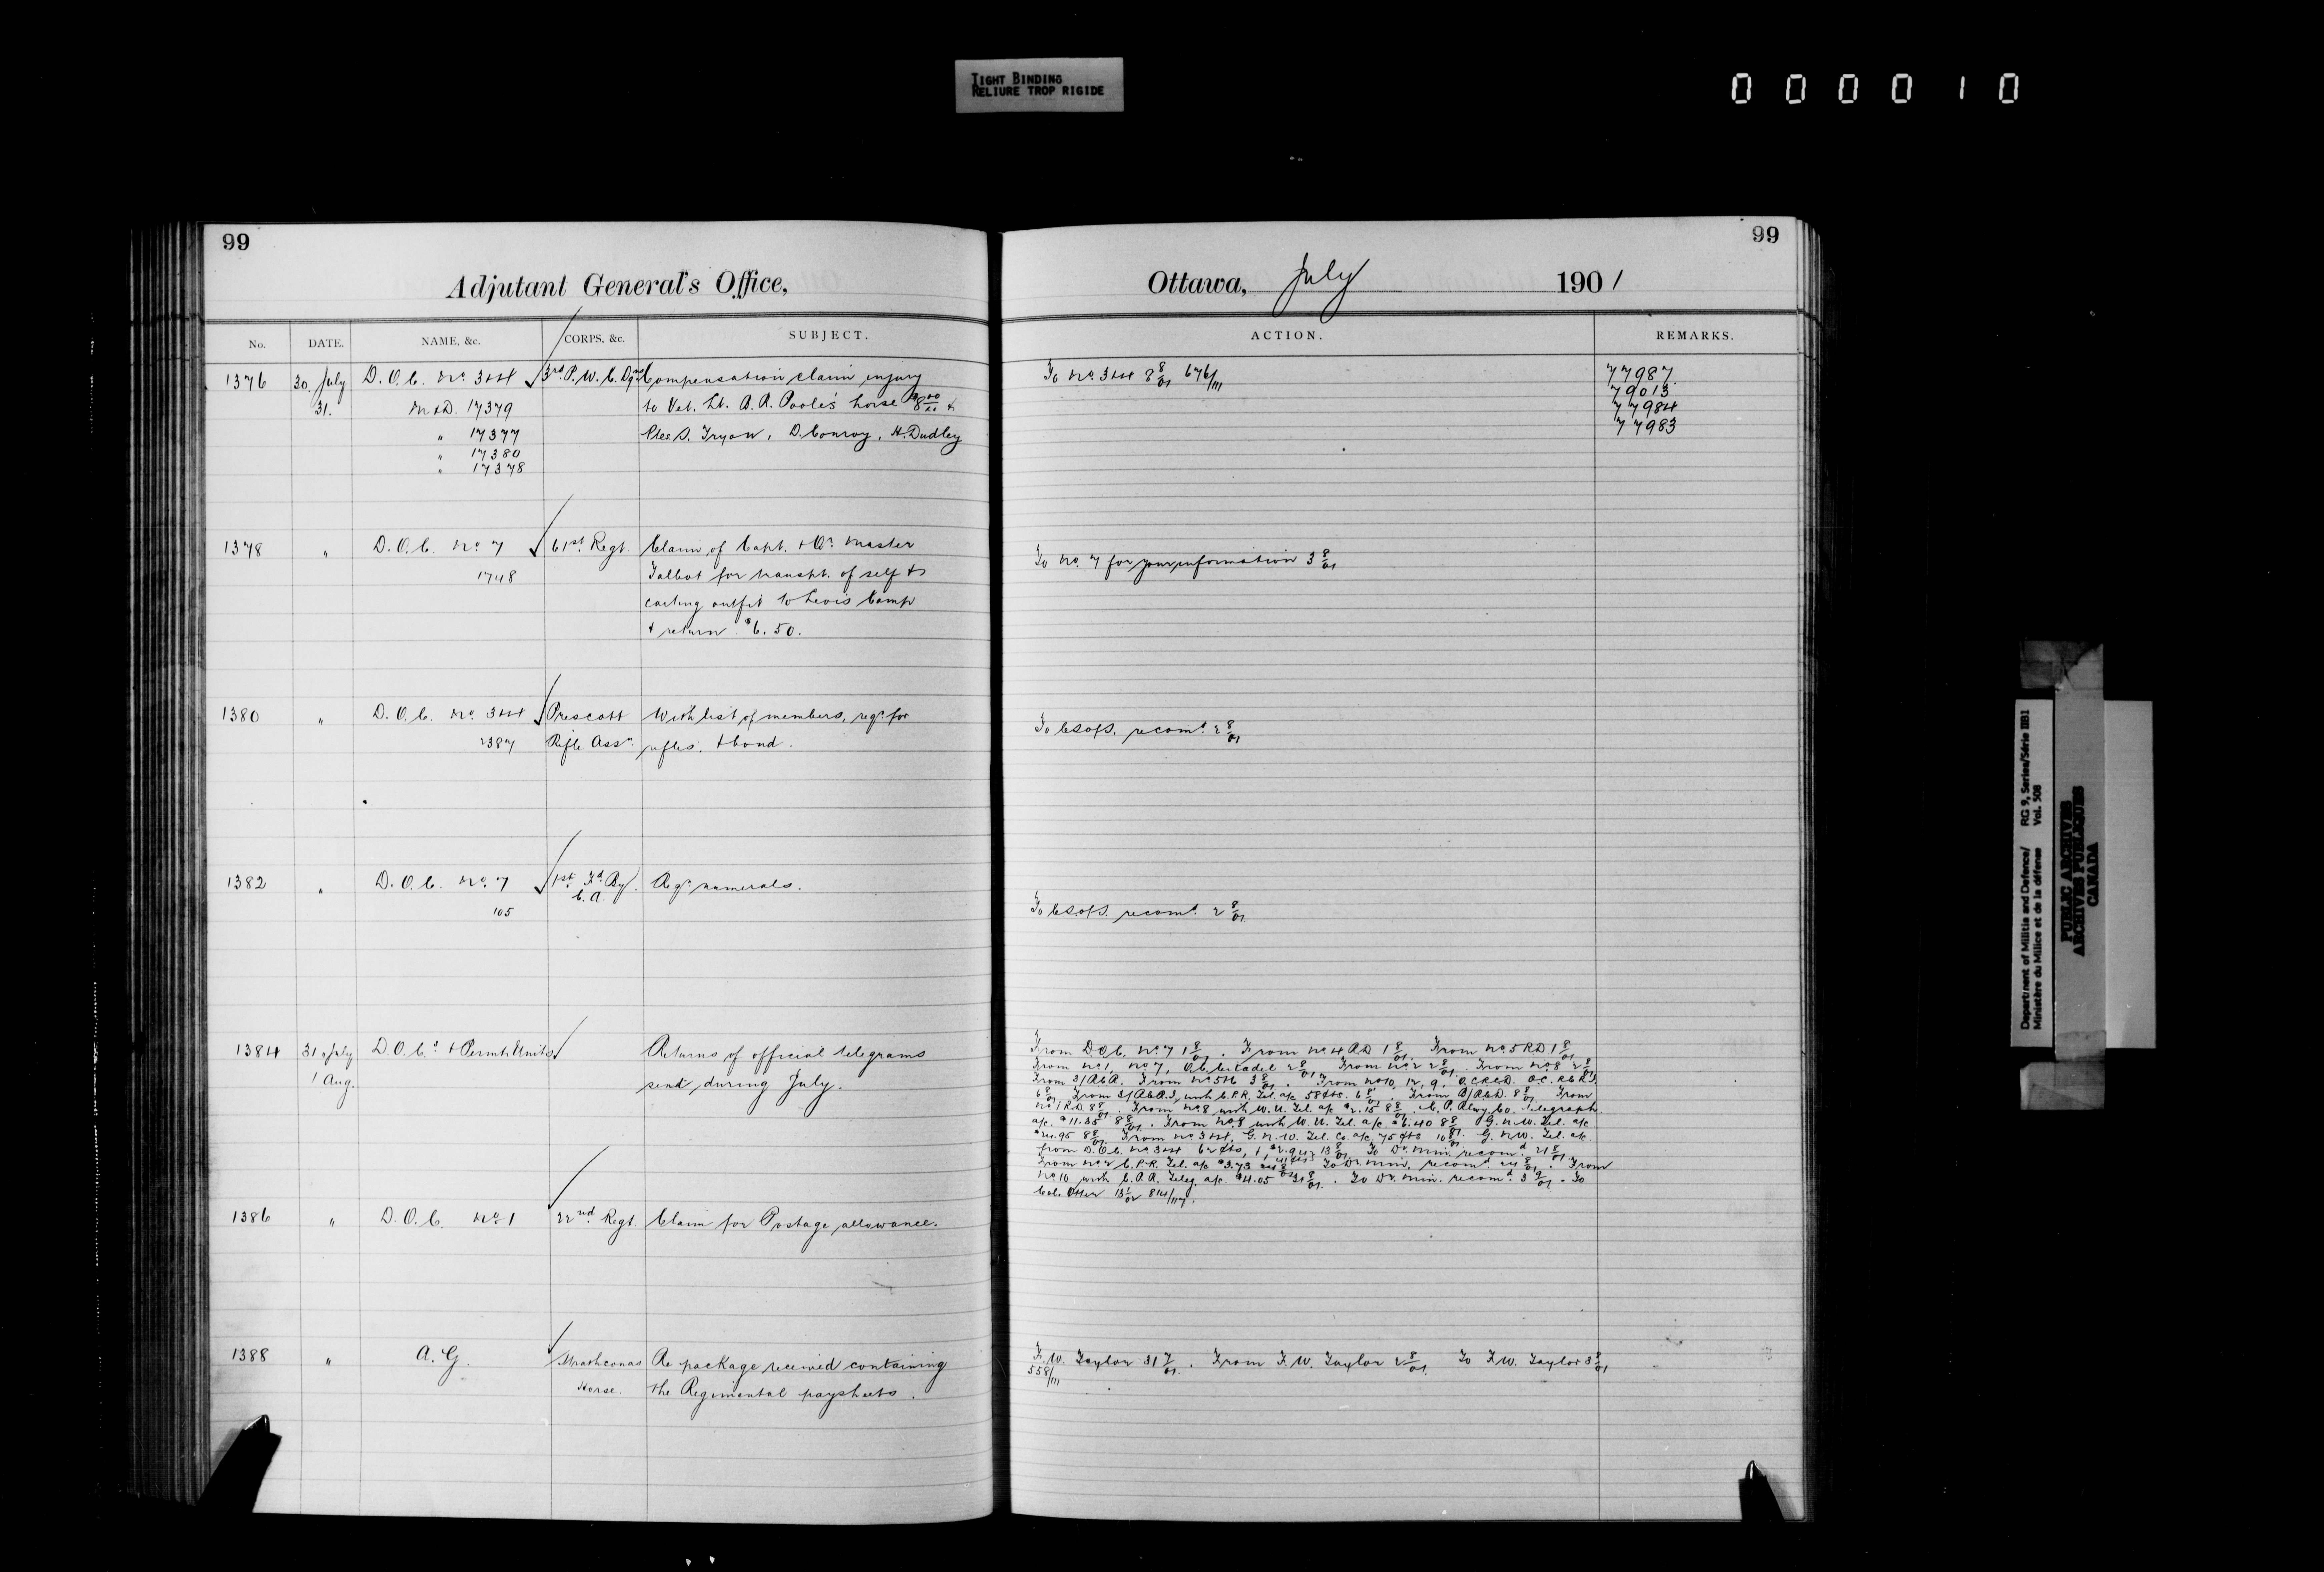 TIGHT BINDING
RELIURE TROP RIGIDE
0 0 0 0 1 0
99
Adjutant General's Office,
No. DATE. NAME, &c. CORPS, &c. SUBJECT.
1376 30. July D.O.C. No. 3+4 3rd P.W.C. Dgns Compensation claim injury
31. M+D. 17379 to Vet. Lt. A. Poole's horse $8 00/00 &
" 17377 Ptes S. Tryon, D. Conroy, H. Dudley
" 17380
" 17378
1378 " D.O.C. No. 7 61st Regt. Claim of Capt. + Qr. Master
1748 Talbot for transpt. of self +
carting outfit to Levis Camp
+ return $6.50.
1380 " D.O.C. No. 3+4 Prescott With list of members, reqn for
2387 Rifle Assn. rifles. + bond.
1382 " D.O.C. No. 7 1st Fd By. Reqn numerals.
105 C.A.
1384 31. July D.O.C.s + Permt. Units Returns of official telegrams
1 Aug. send during July.
1386 " D.O.C. No. 1 22nd Regt. Claim for Postage allowance.
1388 " A.G. Strathconas Re package received containing
Horse. the Regimental paysheets.
99
Ottawa, July 1901
ACTION. REMARKS.
To No. 3+4 8 8/01 676/111 77987
79013
77984
77983
To No. 7 for your information 3 8/01
To CSofS. recomd. 2 8/01
To CSofS. recomd. 2 8/01
From D.O.C. No. 7 1 8/01. From No. 4 RD 1 8/01. From No. 5 RD 1 8/01
From No. 1, No. 7, O.C. Citadel 2 8/01. From No. 2 2 8/01. From No. 8 2 8/01
From 3/RCR. From No. 5+6 3 8/01. From No. 10, 12, 9, O.C.R.C.D. O.C.
6 8/01. From with C.P.R. Tel. a/c 58 cts. 6 8/01. From 8 8/01. From
No. 1 R.D. 8 8/01. From No. 8 with W.U. Tel. a/c $2.15 8 8/01. C.P. Rlwy. Co. Telegraph
a/c. $11.35 8 8/01. From No. 8 with W.U. Tel. a/c $6.40 8 8/01 G.N.W. Tel. a/c
8 8/01. From No. 3+4, G.N.W. Tel. Co. a/c 75 cts 10 8/01. G.N.W. Tel. a/c
from D.O.C. No. 3+4 62 cts, 13 8/01. To Dr. Min. recomd. 21 8/01
From No. 2 C.P.R. Tel. a/c $3.73 24 8/01 To Dr. Min. recomd. 24 8/01. From
No. 10 with C.P.R. Teleg. a/c. $4.05 31 8/01. To Dr. Min. recomd. 3 9/01. To
Col. Otter 13 1/02
F.W. Taylor 31 7/01. From F.W. Taylor 2 8/01. To F.W. Taylor 3 8/01
558/111
Department of Militia and Defence/ RG 9, Series/Série IIB1
Ministère du Milice et de la défense Vol. 508
PUBLIC ARCHIVES
ARCHIVES PUBLIQUES
CANADA